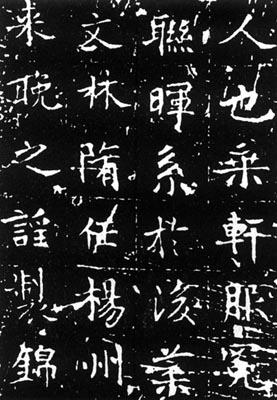 人也乘軒服冕
聯暉系於後葉
文林隋任楊州
来晚之謡製錦